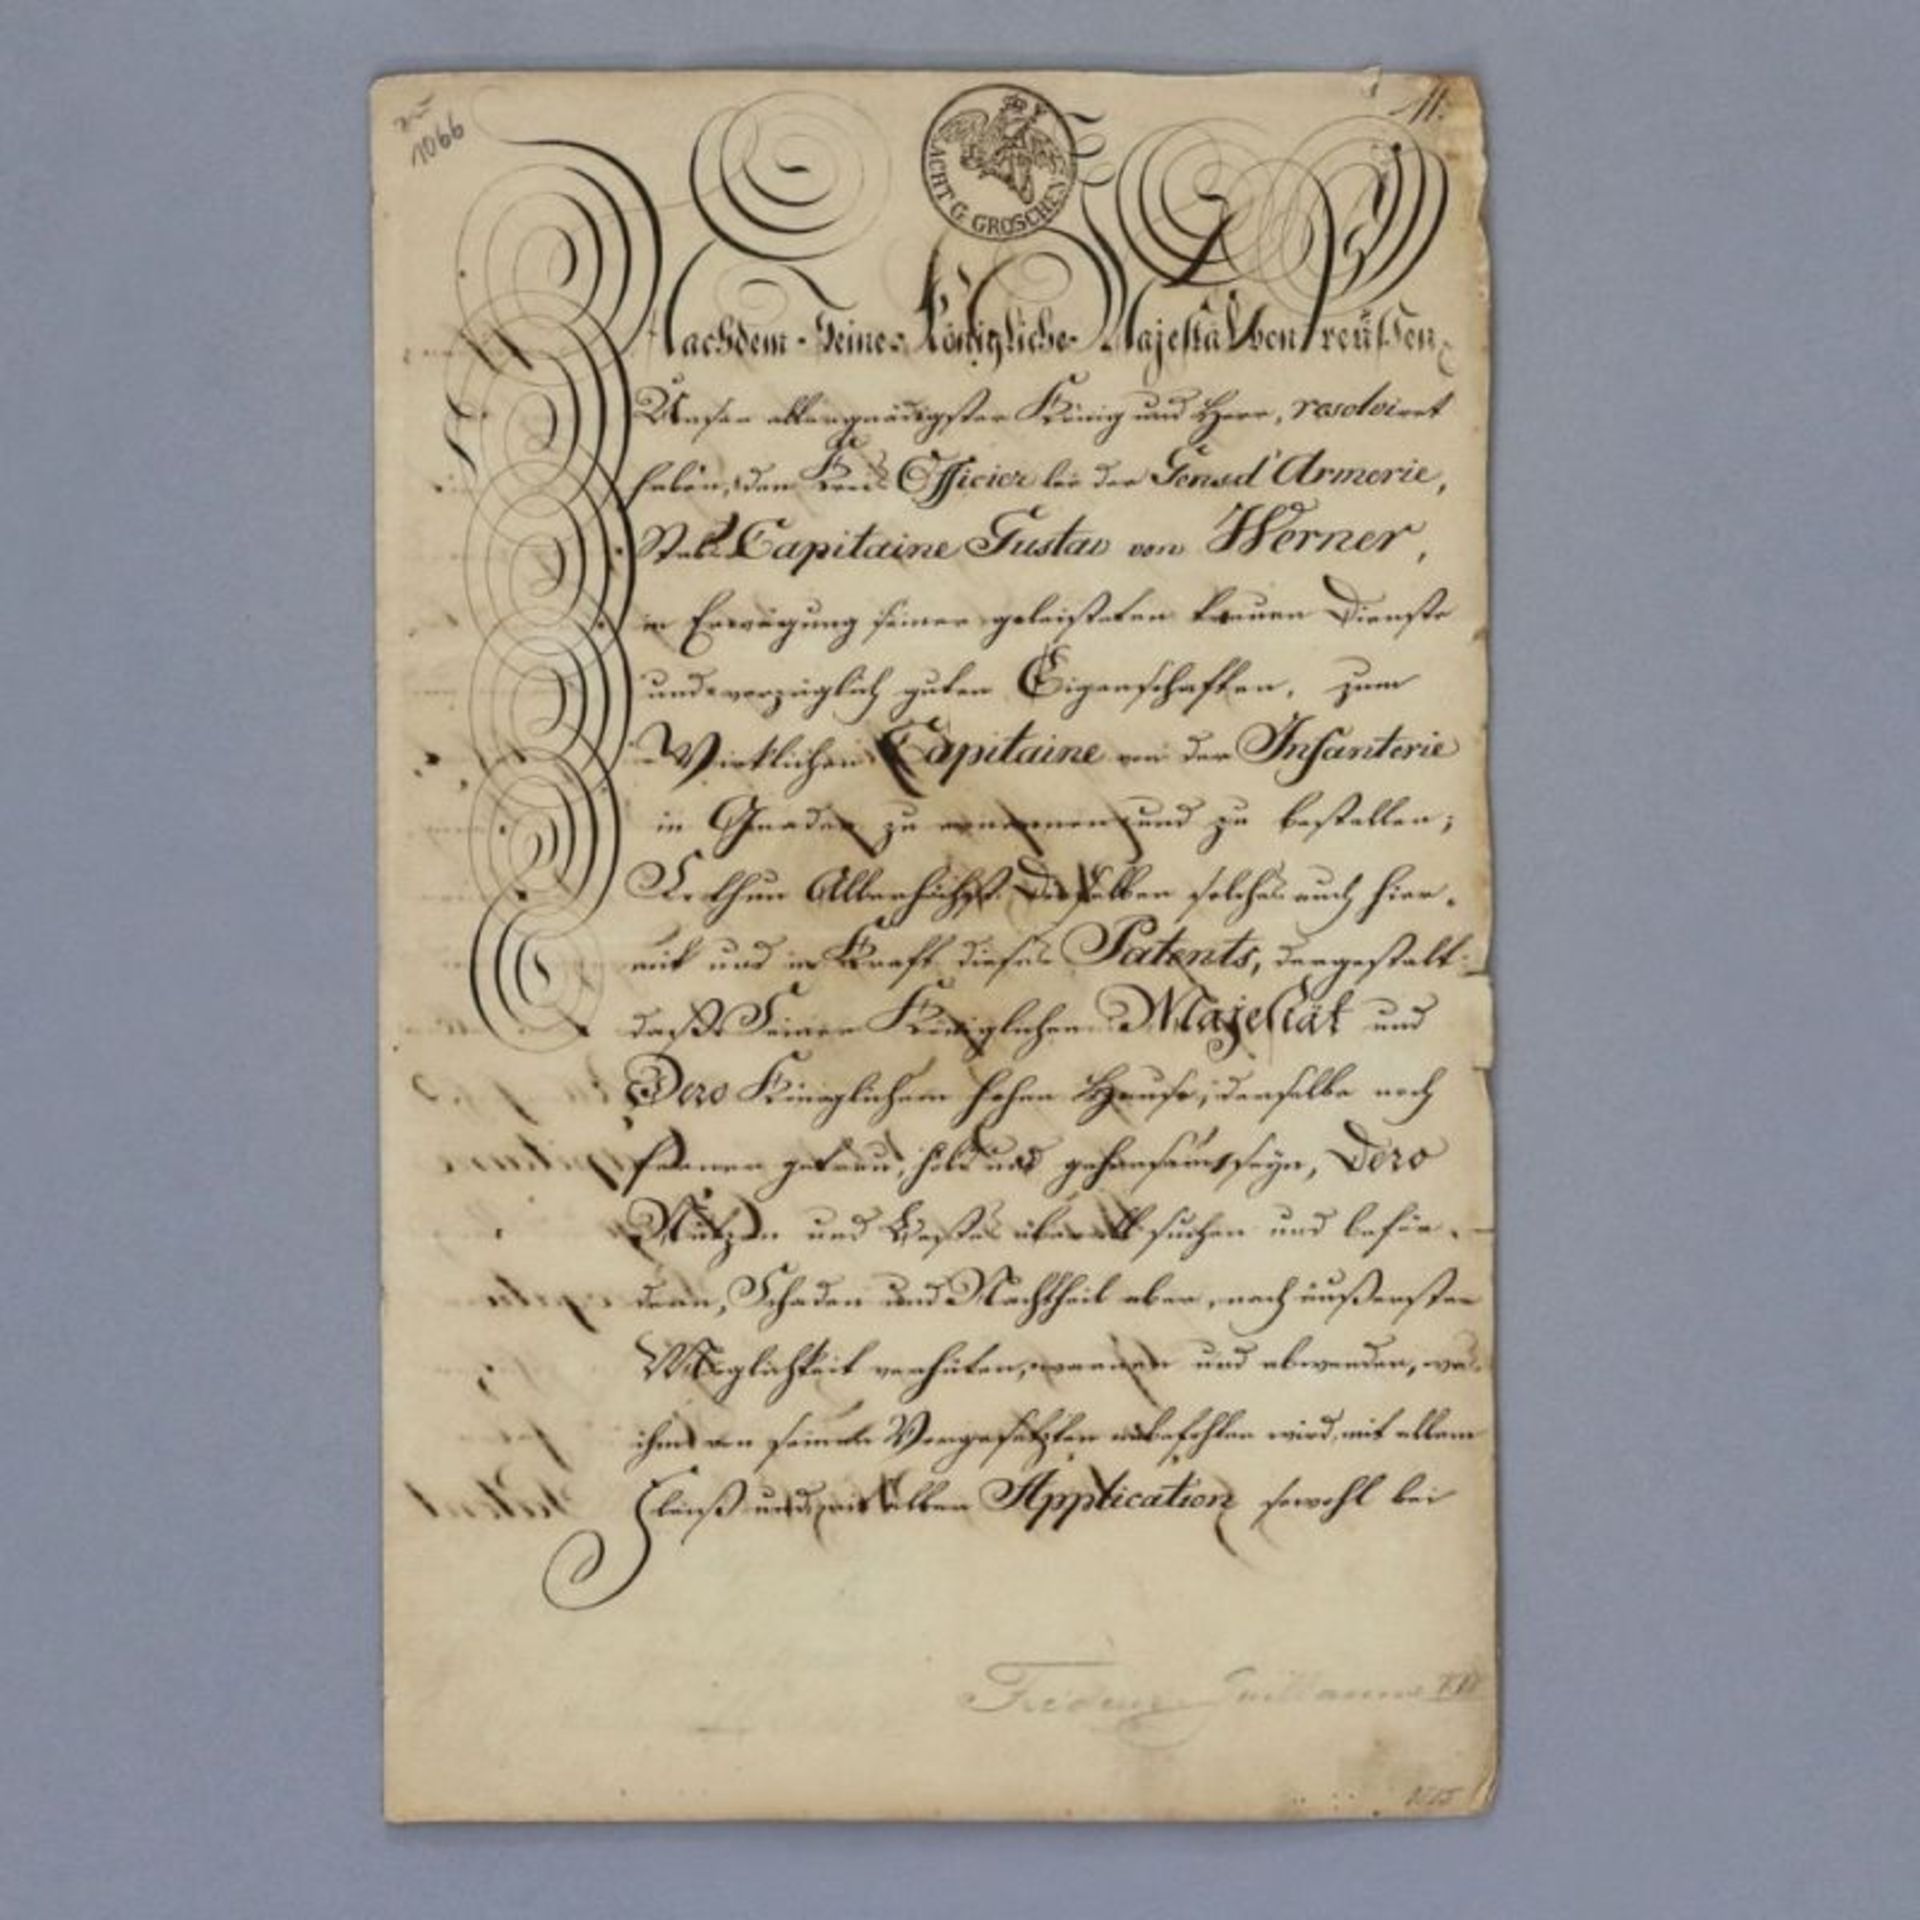 1066
ACHT G. GROSCHEN
Nachdem Seine Königliche Majestät von Preußen,
Unser allergnädigster König und Herr, resolviret
haben, den Kreis Officier bei der Gensd'Armerie,
Stabs Capitaine Gustav von Werner,
in Erwägung seiner geleisteten treuen Dienste
und vorzüglich guten Eigenschaften, zum
Wirklichen Capitaine von der Infanterie
in Gnaden zu ernennen und zu bestellen;
So thun Allerhöchst Dieselben solches auch hier-
mit und in Kraft dieses Patents, dergestalt
daß Seiner Königlichen Majestät und
Dero Königlichem hohen Hause, derselbe noch
ferner getreu, hold und gehorsam seyn, Dero
Nutzen und Bestes überall suchen und beför-
dern, Schaden und Nachtheil aber, nach äußerster
Möglichkeit verhüten, warnen und abwenden, was
ihm von seinen Vorgesetzten anbefohlen wird, mit allem
Fleiß und mit aller Application sowohl bei